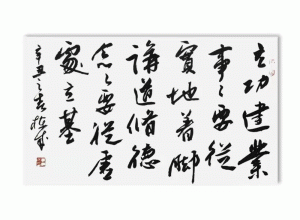 立功建業
事々要從
實地着腳
講道脩德
念々要從虛
處立基
辛丑之春